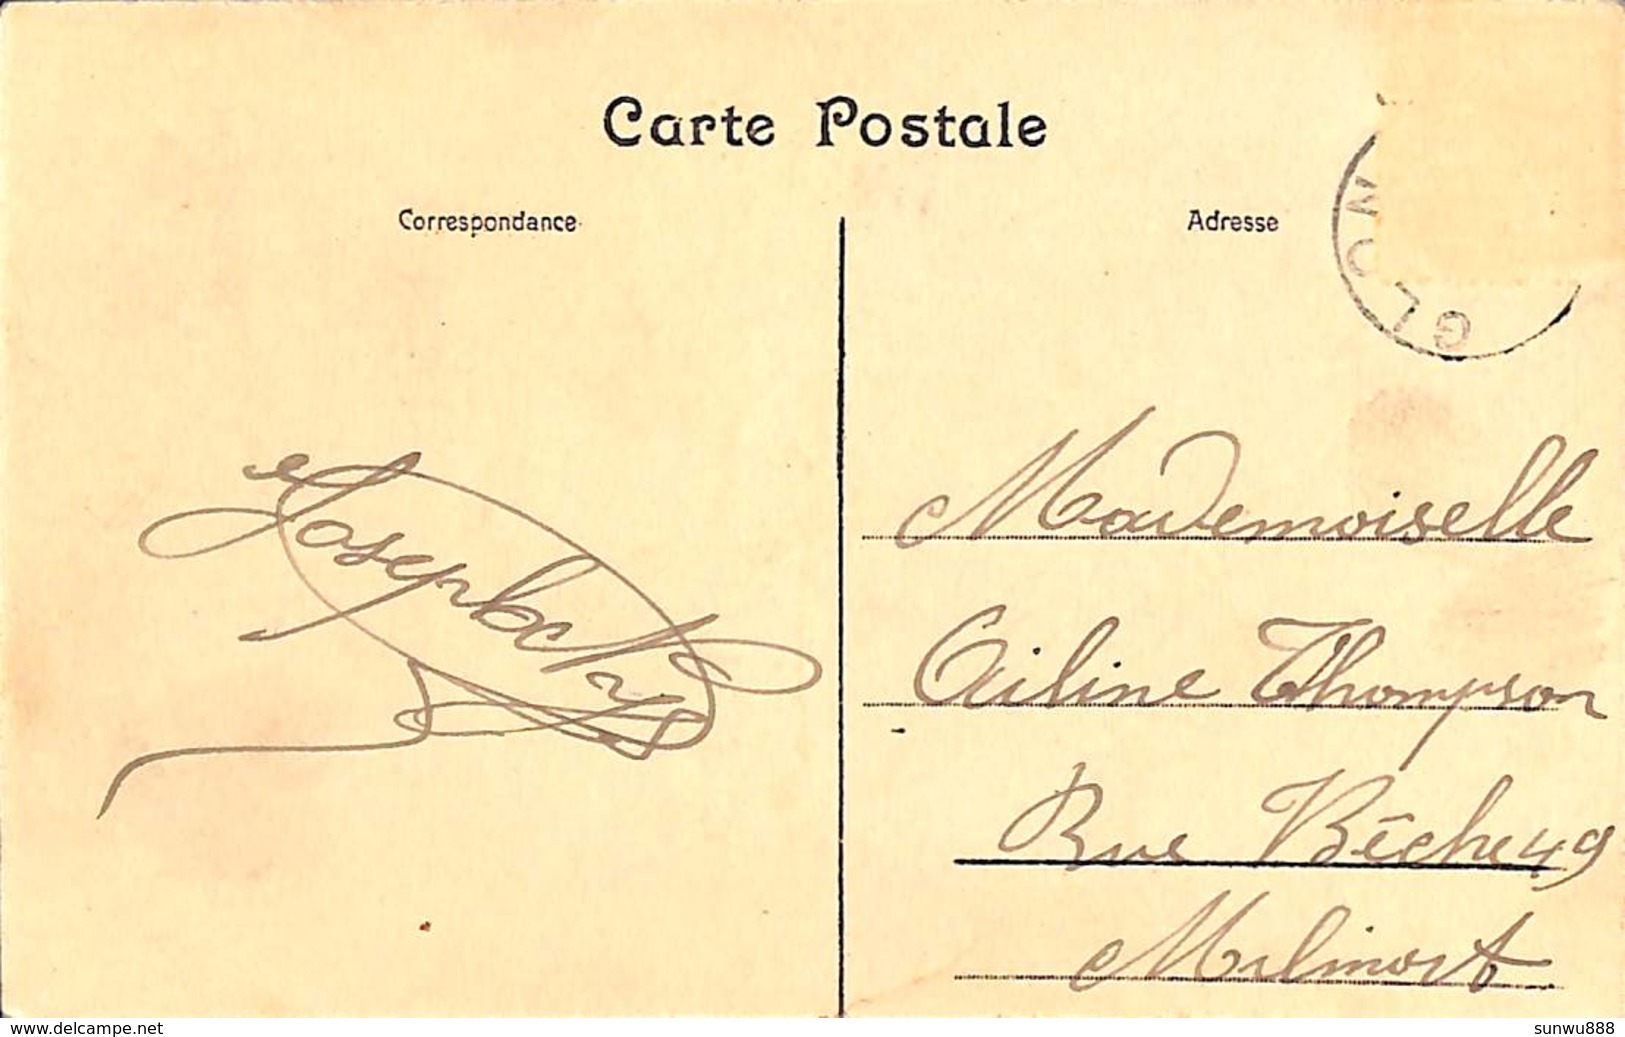 Carte Postale
Correspondance
Adresse
GLON
Joseph
Mademoiselle
Ailine Thompson
Rue Bêche 49
Milmort
www.delcampe.net
sunwu888